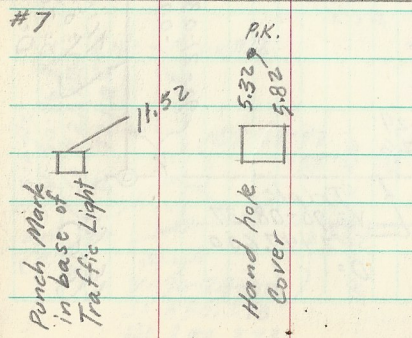 #7
P.K.
11.52
5.32
5.82
Punch Mark
in base of
Traffic Light
Hand hole
Cover